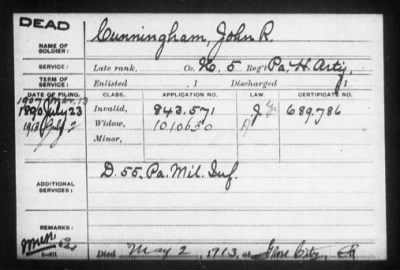 DEAD
NAME OF SOLDIER: Cunningham, John R.
SERVICE: Late rank, Co. K. 5 Reg't Pa. H. Arty,
TERM OF SERVICE: Enlisted , 1 Discharged , 1
DATE OF FILING. CLASS. APPLICATION NO. LAW. CERTIFICATE NO.
1907 Mar. 13
1890 July 23 Invalid, 843.571 J 689,786
1913 July 2 Widow, 1010650
Minor,
ADDITIONAL SERVICES: D. 55. Pa. Mil. Inf.
REMARKS:
Died May 2, 1913, at City,